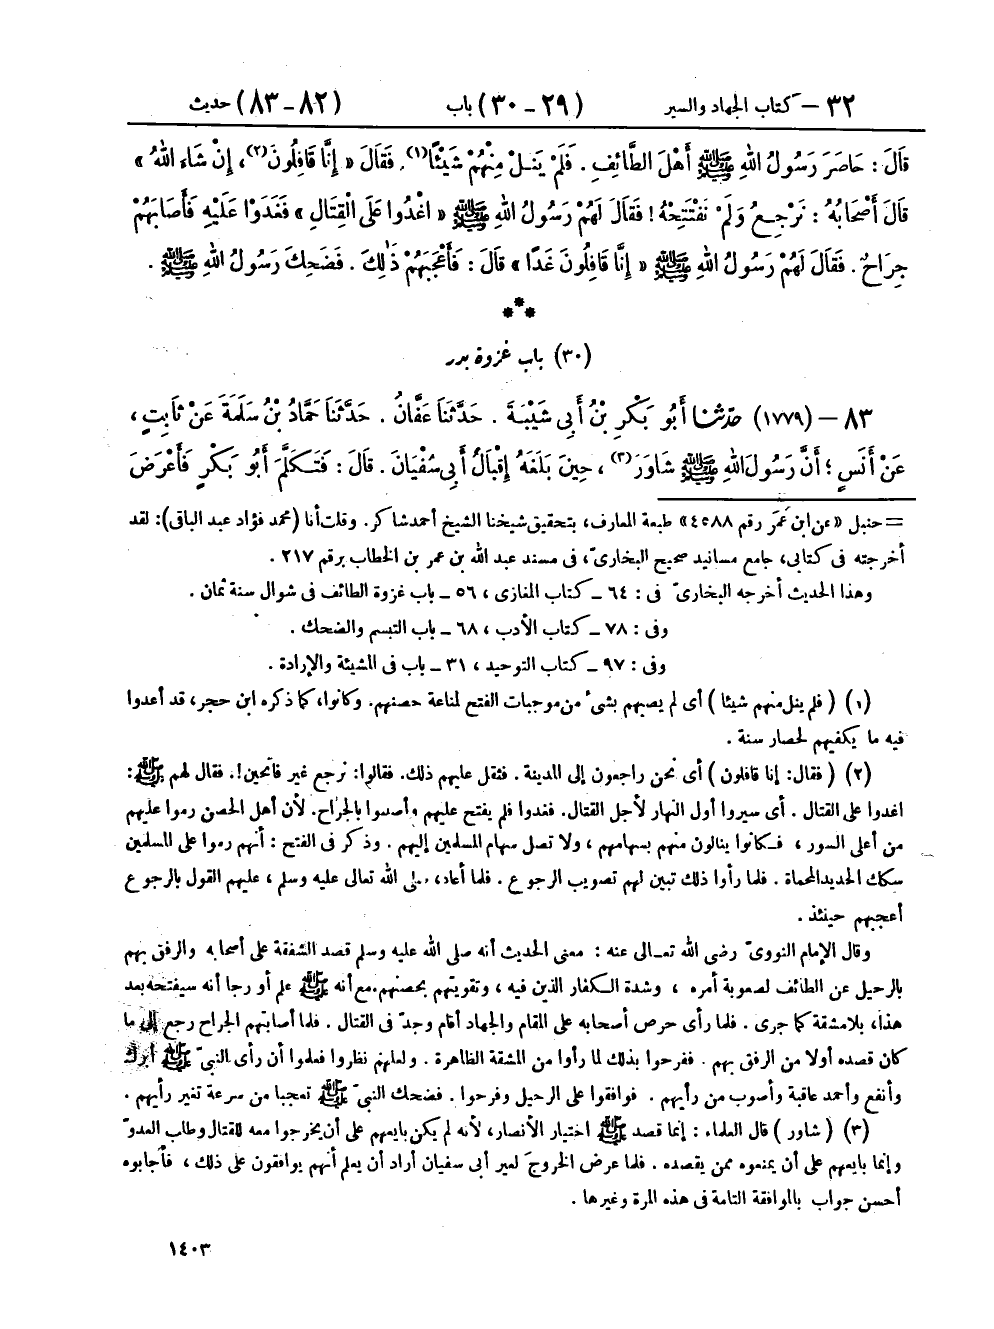 ٣٢ – كتاب الجهاد والسير (٢٩ – ٣٠) باب (٨٢ – ٨٣) حديث
قَالَ : حَاصَرَ رَسُولُ اللهِ ﷺ أَهْلَ الطَّائِفِ . فَلَمْ يَنَلْ مِنْهُمْ شَيْئًا(١) . فَقَالَ « إِنَّا قَافِلُونَ(٢) ، إِنْ شَاءَ اللهُ »
قَالَ أَصْحَابُهُ : نَرْجِعُ وَلَمْ نَفْتَتِحْهُ ! فَقَالَ لَهُمْ رَسُولُ اللهِ ﷺ « اغْدُوا عَلَى الْقِتَالِ » فَغَدَوْا عَلَيْهِ فَأَصَابَهُمْ
جِرَاحٌ . فَقَالَ لَهُمْ رَسُولُ اللهِ ﷺ « إِنَّا قَافِلُونَ غَدًا » قَالَ : فَأَعْجَبَهُمْ ذَٰلِكَ . فَضَحِكَ رَسُولُ اللهِ ﷺ .
***
(٣٠) باب غزوة بدر
٨٣ – (١٧٧٩) حدّثنا أَبُو بَكْرِ بْنُ أَبِي شَيْبَةَ . حَدَّثَنَا عَفَّانُ . حَدَّثَنَا حَمَّادُ بْنُ سَلَمَةَ عَنْ ثَابِتٍ ،
عَنْ أَنَسٍ ؛ أَنَّ رَسُولَ اللهِ ﷺ شَاوَرَ(٣) ، حِينَ بَلَغَهُ إِقْبَالُ أَبِي سُفْيَانَ . قَالَ : فَتَكَلَّمَ أَبُو بَكْرٍ فَأَعْرَضَ
= حنبل « عن ابن عُمَر رقم ٤٥٨٨ » طبعة المعارف، بتحقيق شيخنا الشيخ أحمد شاكر. وقلت أنا (محمد فؤاد عبد الباقى): لقد
أخرجته فى كتابى، جامع مسانيد صحيح البخارىّ، فى مسند عبد الله بن عمر بن الخطاب برقم ٢١٧ .
وهذا الحديث أخرجه البخارىّ فى : ٦٤ – كتاب المغازى ، ٥٦ – باب غزوة الطائف فى شوال سنة ثمان .
وفى : ٧٨ – كتاب الأدب ، ٦٨ – باب التبسم والضحك .
وفى : ٩٧ – كتاب التوحيد ، ٣١ – باب فى المشيئة والإرادة .
(١) ( فلم ينل منهم شيئا ) أى لم يصبهم بشىء من موجبات الفتح لمناعة حصنهم. وكانوا، كما ذكره ابن حجر، قد أعدوا
فيه ما يكفيهم لحصار سنة .
(٢) ( فقال: إنا قافلون ) أى نحن راجعون إلى المدينة . فثقل عليهم ذلك. فقالوا: نرجع غير فاتحين !. فقال لهم ﷺ :
اغدوا على القتال . أى سيروا أول النهار لأجل القتال. فغدوا فلم يفتح عليهم وأصيبوا بالجراح. لأن أهل الحصن رموا عليهم
من أعلى السور ، فكانوا ينالون منهم بسهامهم ، ولا تصل سهام المسلمين إليهم . وذكر فى الفتح : أنهم رموا على المسلمين
سكك الحديد المحماة . فلما رأوا ذلك تبين لهم تصويب الرجوع . فلما أعاد، صلى الله تعالى عليه وسلم ، عليهم القول بالرجوع
أعجبهم حينئذ .
وقال الإمام النووىّ رضى الله تعالى عنه : معنى الحديث أنه صلى الله عليه وسلم قصد الشفقة على أصحابه والرفق بهم
بالرحيل عن الطائف لصعوبة أمره ، وشدة الكفار الذين فيه ، وتقويتهم بحصنهم. مع أنه ﷺ علم أو رجا أنه سيفتحه بعد
هذا، بلا مشقة كما جرى . فلما رأى حرص أصحابه على المقام والجهاد أقام وجدّ فى القتال . فلما أصابتهم الجراح رجع إلى ما
كان قصده أولا من الرفق بهم . ففرحوا بذلك لما رأوا من المشقة الظاهرة . ولعلهم نظروا فعلموا أن رأى النبىّ ﷺ أبرك
وأنفع وأحمد عاقبة وأصوب من رأيهم . فوافقوا على الرحيل وفرحوا . فضحك النبىّ ﷺ تعجبا من سرعة تغير رأيهم .
(٣) ( شاور ) قال العلماء : إنما قصد ﷺ اختبار الأنصار، لأنه لم يكن بايعهم على أن يخرجوا معه للقتال وطلب العدوّ
وإنما بايعهم على أن يمنعوه ممن يقصده . فلما عرض الخروجَ لعير أبى سفيان أراد أن يعلم أنهم يوافقون على ذلك ، فأجابوه
أحسن جواب بالموافقة التامة فى هذه المرة وغيرها .
١٤٠٣